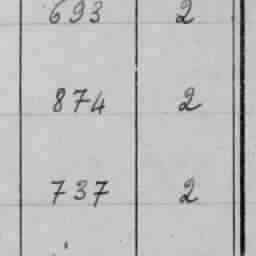 693 2
874 2
737 2